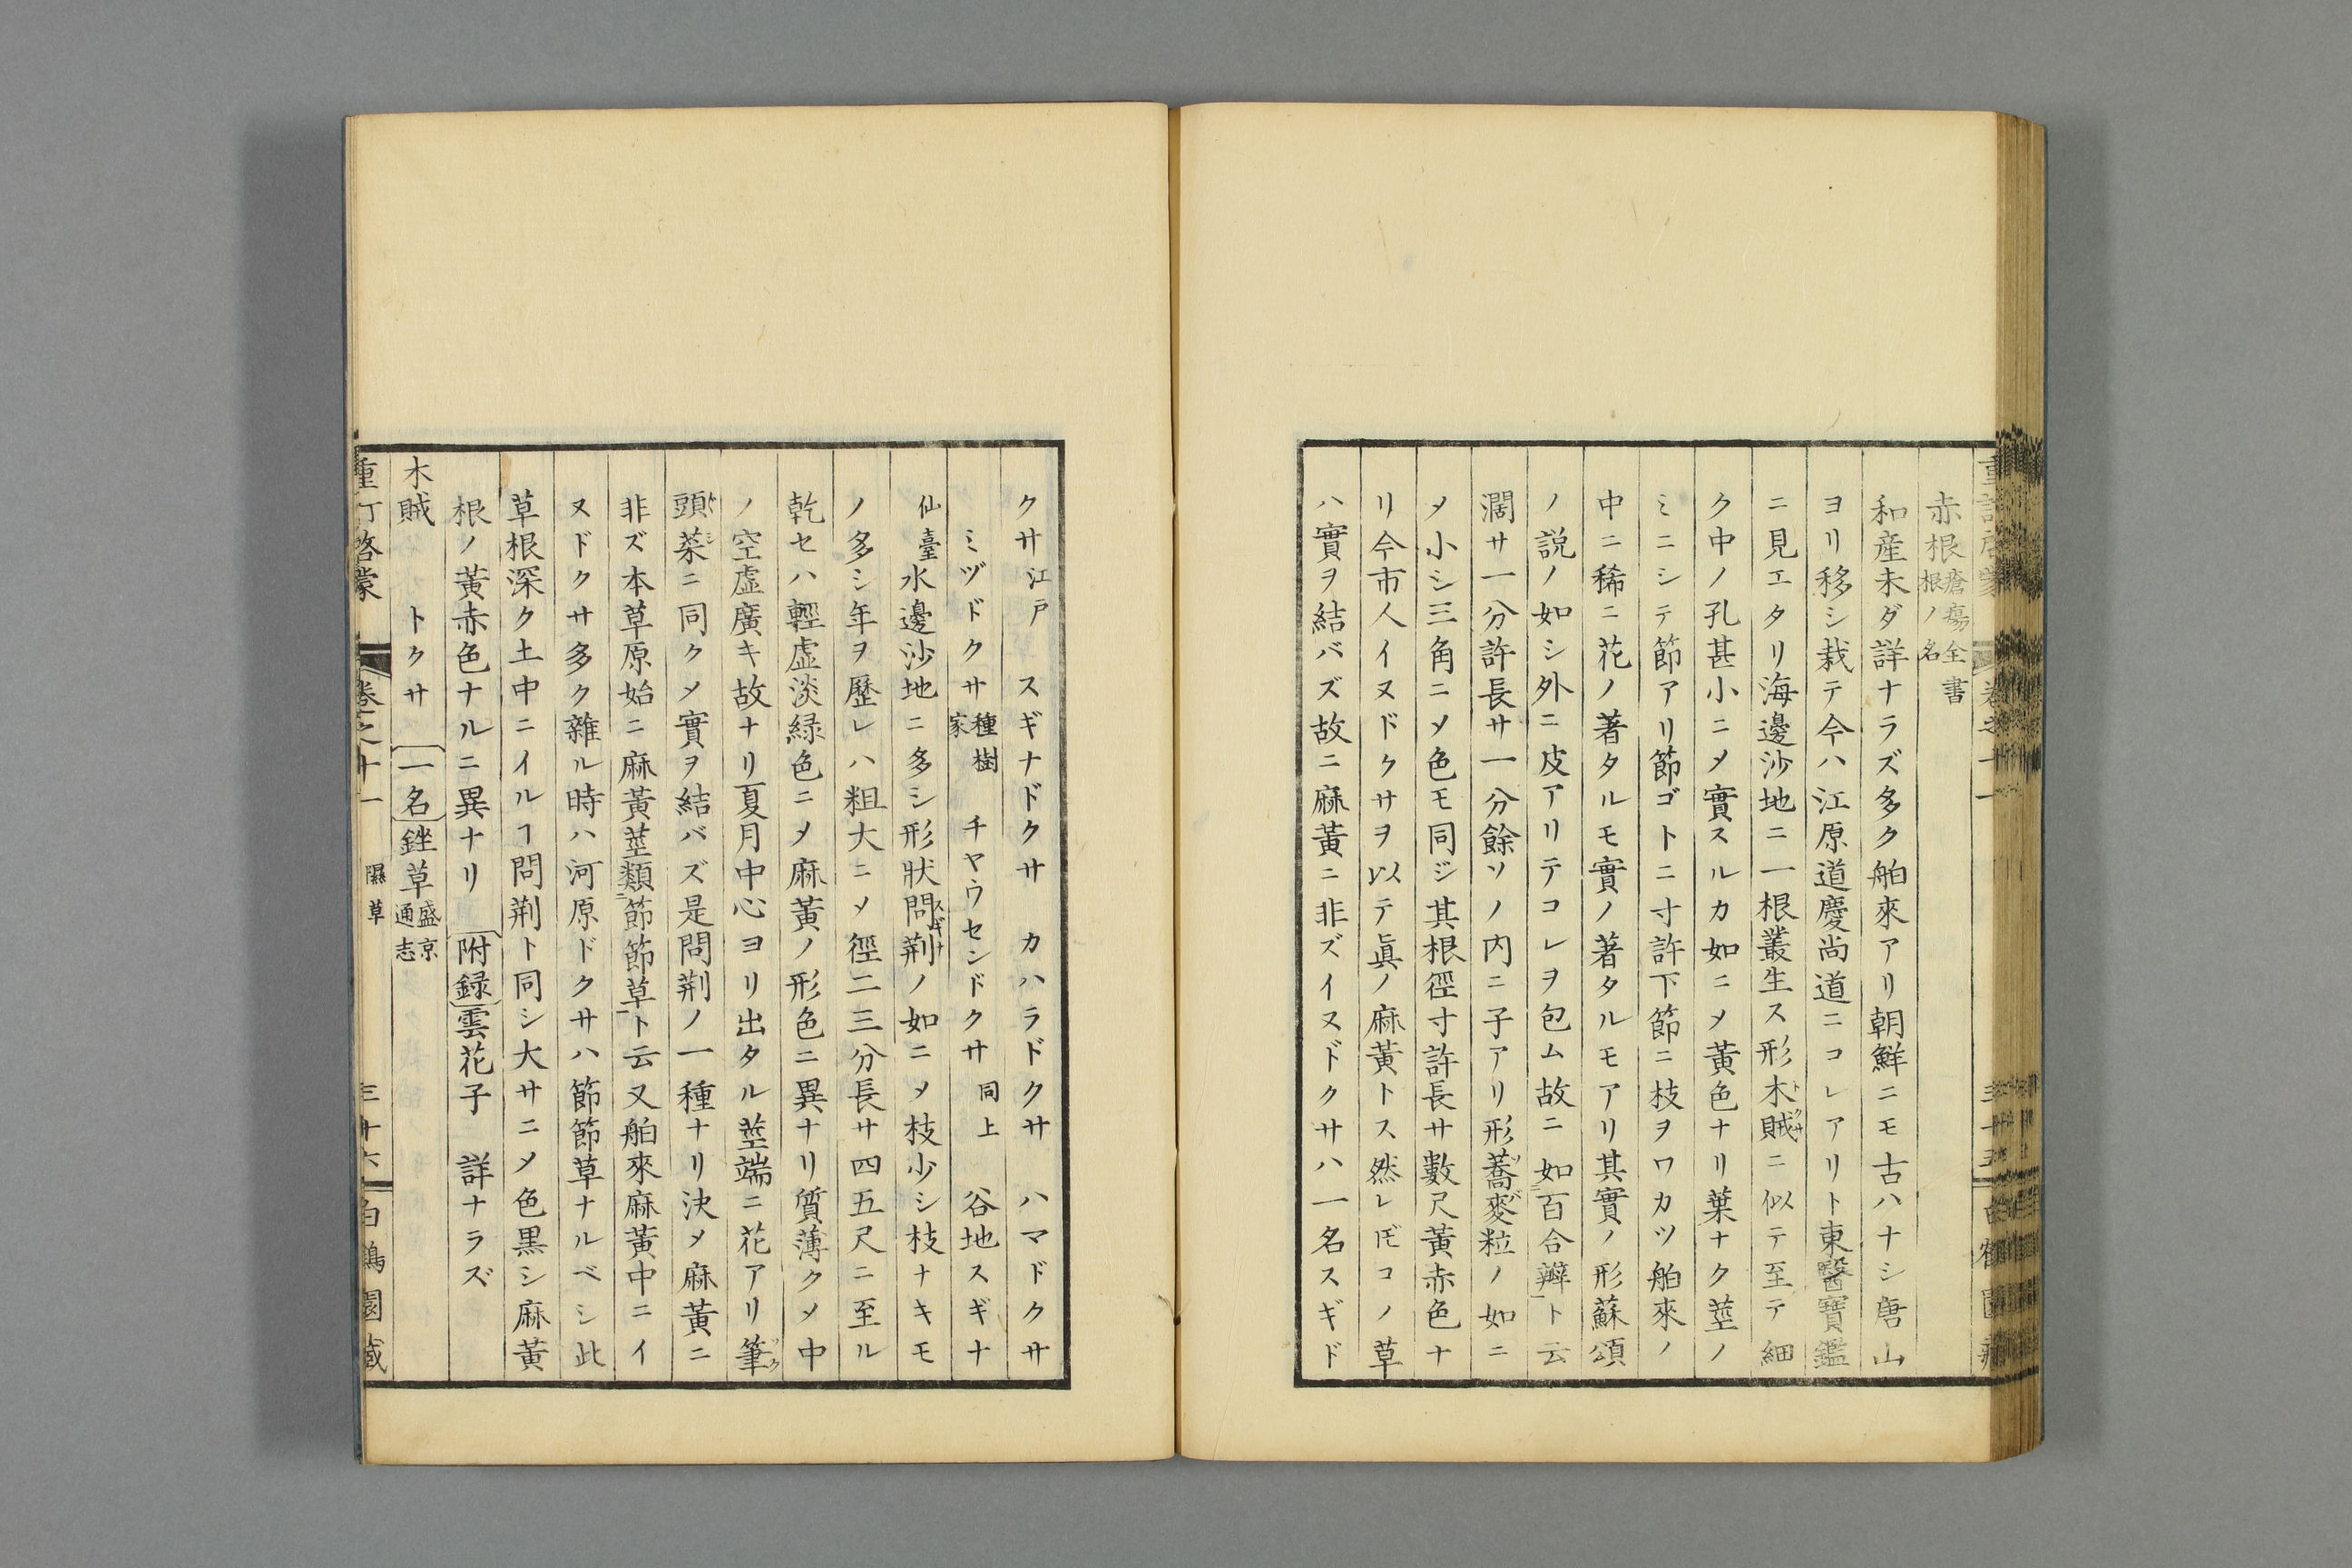 赤根瘡瘍全書根ノ名
和産未ダ詳ナラズ多ク舶來アリ朝鮮ニモ古ハナシ唐山
ヨリ移シ栽テ今ハ江原道慶尚道ニコレアリト東醫寶鑑
ニ見エタリ海邊沙地ニ一根叢生ス形木賊トクサニ似テ至テ細
ク中ノ孔甚小ニメ實スルカ如ニメ黃色ナリ葉ナク莖ノ
ミニシテ節アリ節ゴトニ寸許下節ニ枝ヲワカツ舶來ノ
中ニ稀ニ花ノ著タルモ實ノ著タルモアリ其實ノ形蘇頌
ノ説ノ如シ外ニ皮アリテコレヲ包ム故ニ如百合瓣ト云
濶サ一分許長サ一分餘ソノ内ニ子アリ形蕎麥粒ノ如ニ
メ小シ三角ニメ色モ同ジ其根徑寸許長サ數尺黃赤色ナ
リ今市人イヌドクサヲ以テ眞ノ麻黃トス然レ𪜈コノ草
ハ實ヲ結バズ故ニ麻黃ニ非ズイヌドクサハ一名スギド
クサ江戸 スギナドクサ カハラドクサ ハマドクサ
ミヅドクサ種樹家 チヤウセンドクサ同上 谷地スギナ
仙臺水邊沙地ニ多シ形狀問荆スギナノ如ニメ枝少シ枝ナキモ
ノ多シ年ヲ歷レハ粗大ニメ徑二三分長サ四五尺ニ至ル
乾セハ輕虛淡緑色ニメ麻黃ノ形色ニ異ナリ質薄クメ中
ノ空虛廣キ故ナリ夏月中心ヨリ出タル莖端ニ花アリ筆ツク
頭菜シニ同クメ實ヲ結バズ是問荆ノ一種ナリ決メ麻黃ニ
非ズ本草原始ニ麻黃莖類節節草ト云又舶來麻黃中ニイ
ヌドクサ多ク雜ル時ハ河原ドクサハ節節草ナルベシ此
草根深ク土中ニイルヿ問荆ト同シ大サニメ色黒シ麻黃
根ノ黃赤色ナルニ異ナリ 附録雲花子 詳ナラズ
木賊 トクサ 一名銼草盛京通志
重訂啓蒙 卷之十一 隰草 三十六 白鶴園藏